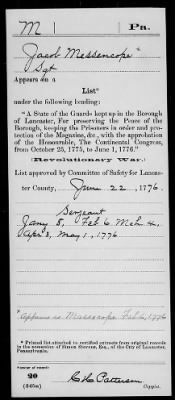 M | Pa.
Jacob Messencope
Sgt
Appears on a
List*
under the following heading:
"A State of the Guards kept up in the Borough
of Lancaster, For preserving the Peace of the
Borough, keeping the Prisoners in order and pro-
tection of the Magazine, &c., with the approbation
of the Honourable, The Continental Congress,
from October 25, 1775, to June 1, 1776."
(Revolutionary War.)
List approved by Committee of Safety for Lancas-
ter County, June 22, 1776.
Sergeant
Jany 8, Feb 6, Mch 4,
Apr 3, May 1, 1776
Appears as Messencope Feb 6, 1776
* Printed list attached to certified extracts from original records
in the possession of Simon Stevens, Esq., of the City of Lancaster,
Pennsylvania.
Number of record:
20
(545a)
Copyist.